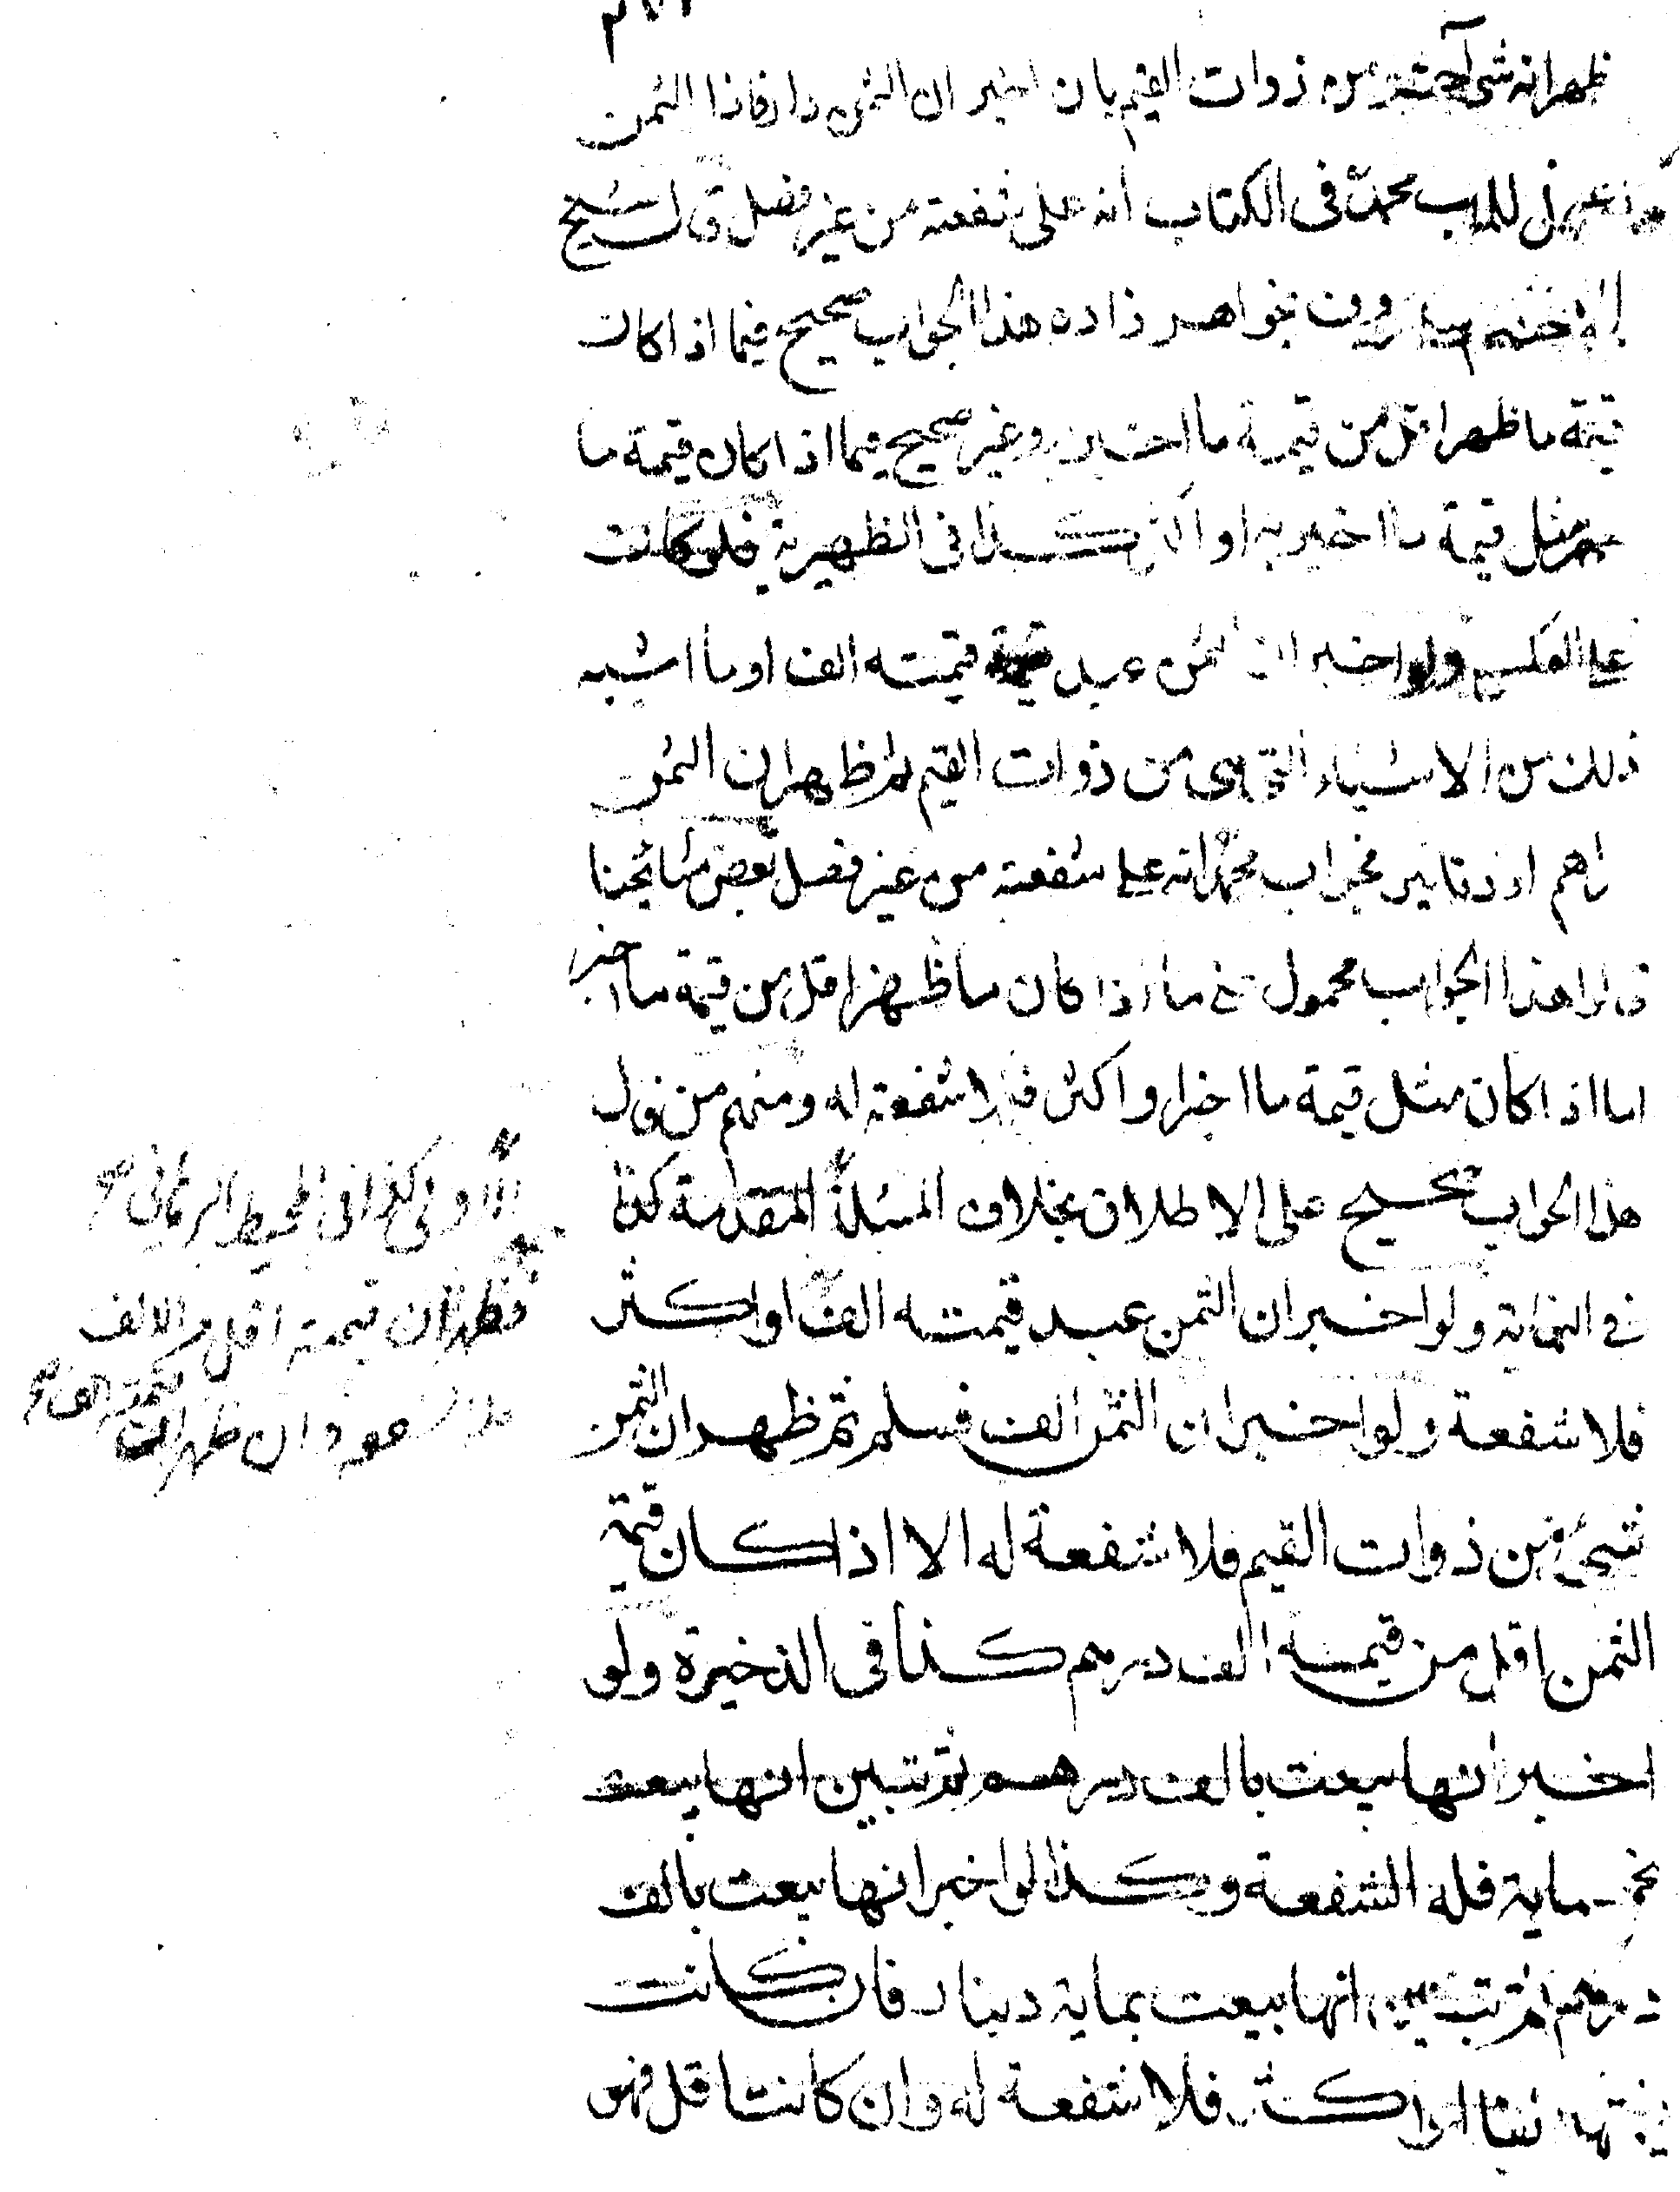 ظهر انه شئ آخر من ذوات القيم بان اخبر ان الثمن دار فاذا الثمن
محمد فى الكتاب انه على شفعته من غير فصل قال شيخ
خواهر زاده هذا الجواب صحيح فيما اذا كانت
قيمة ما ظهر اقل من قيمة ما اخبر به وغير صحيح فيما اذا كان قيمة ما
ظهر مثل قيمة ما اخبر به او اكثر كذا فى الظهيرية فلو كانت
على العكس ولو اخبر ان الثمن عبد قيمته الف او ما اشبه
ذلك من الاشياء التى هى من ذوات القيم ثم ظهر ان الثمن
راهم او دنانير فجواب محمد انه على شفعته من غير فصل بعض مشائخنا
قالوا هذا الجواب محمول على ما اذا كان ما ظهر اقل من قيمة ما اخبر
اما اذا كان مثل قيمة ما اخبر او اكثر فلا شفعة له ومنهم من قال
هذا الجواب صحيح على الاطلاق بخلاف المسئلة المتقدمة كذا
فى النهاية ولو اخبر ان الثمن عبد قيمته الف او اكثر
فلا شفعة ولو اخبر ان الثمن الف فسلم ثم ظهر ان الثمن
شئ من ذوات القيم فلا شفعة له الا اذا كان قيمة
الثمن اقل من قيمة الف درهم كذا فى الذخيرة ولو
اخبر انها بيعت بالف درهم ثم تبين انها بيعت
بخمسماية فله الشفعة وكذا لو اخبر انها بيعت بالف
درهم ثم تبين انها بيعت بماية دينار فان كانت
قيمتها الفا او اكثر فلا شفعة له وان كانت اقل فهو
الاولى كذا فى المحيط البرهانى
فظهر ان قيمته اقل من الالف
وان ظهر ان قيمته الف